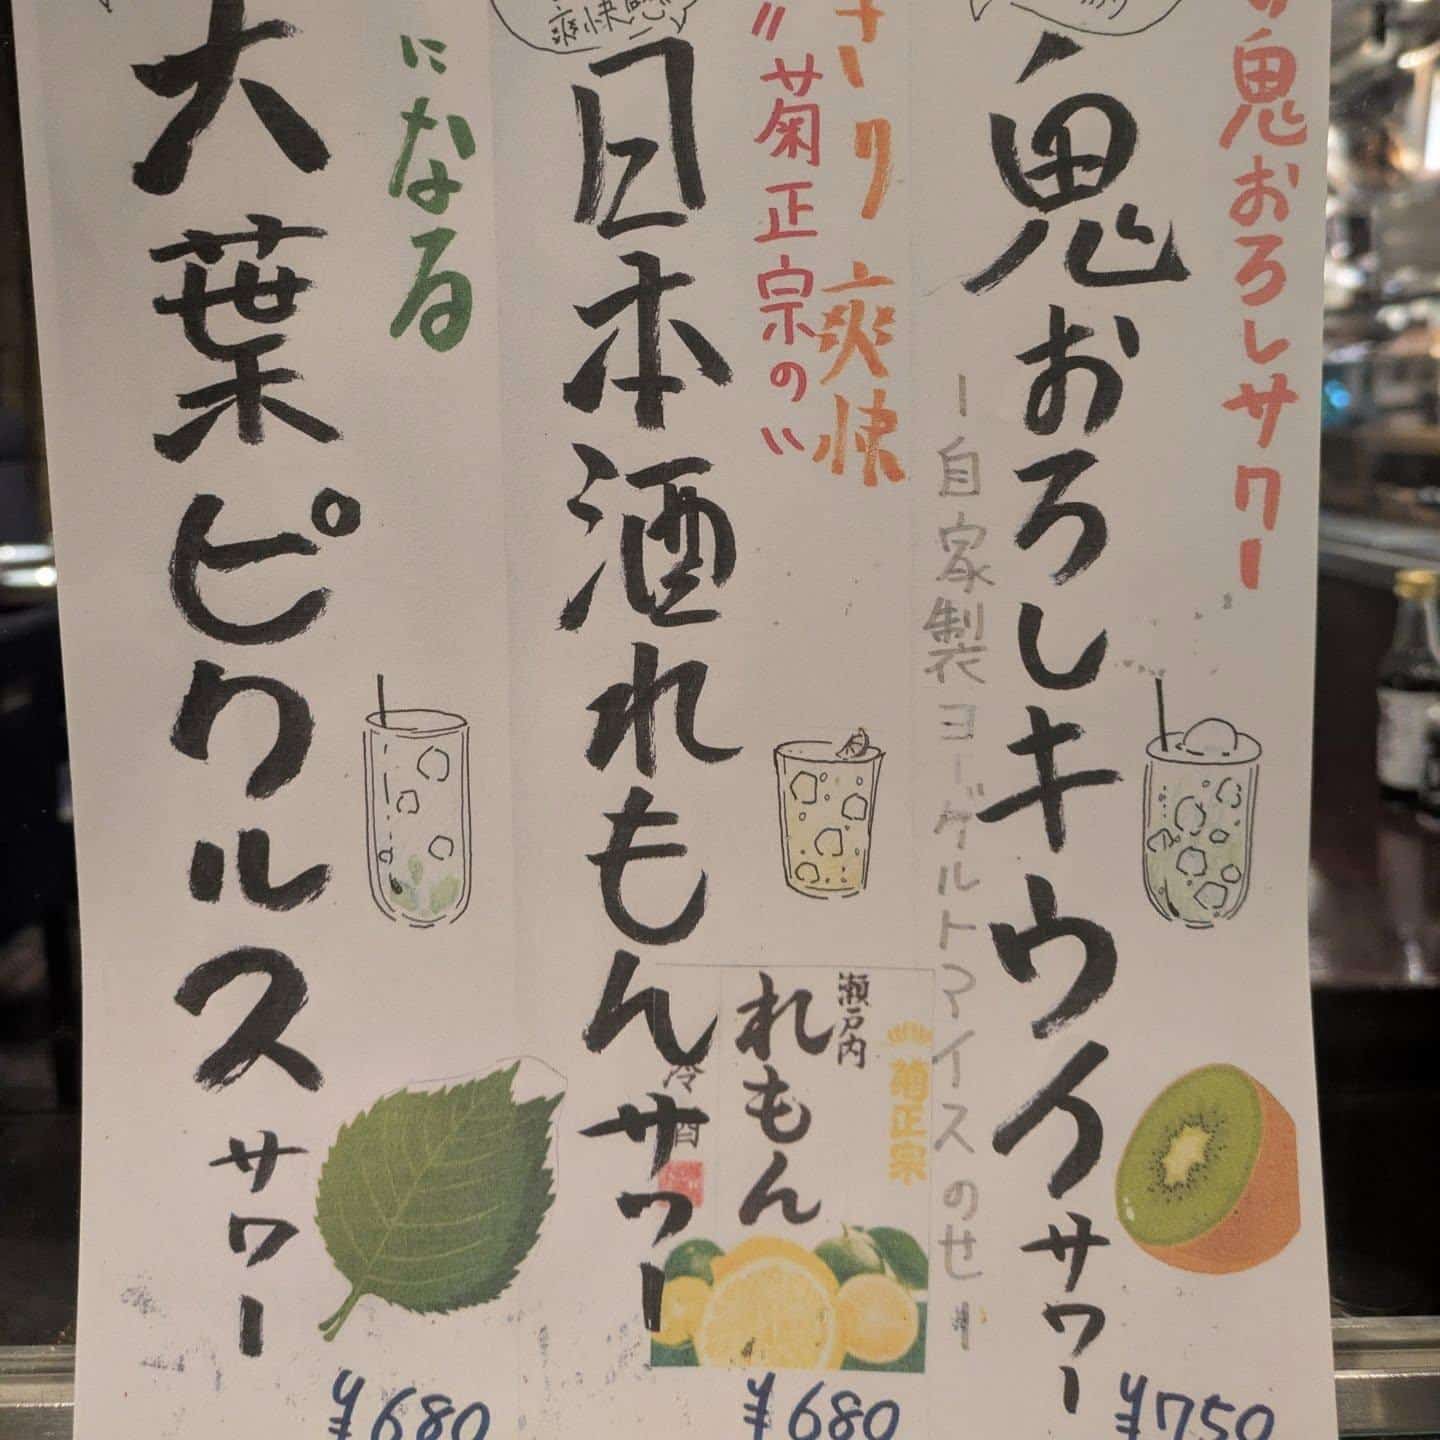 "鬼おろしサワー
鬼おろしキウイサワー
ー自家製ヨーグルトアイスのせー
¥750
さり爽快
"菊正宗の"
爽快感
日本酒れもんサワー
瀬戸内
れもん
菊正宗
冷酒
¥680
になる
大葉ピクルスサワー
¥680